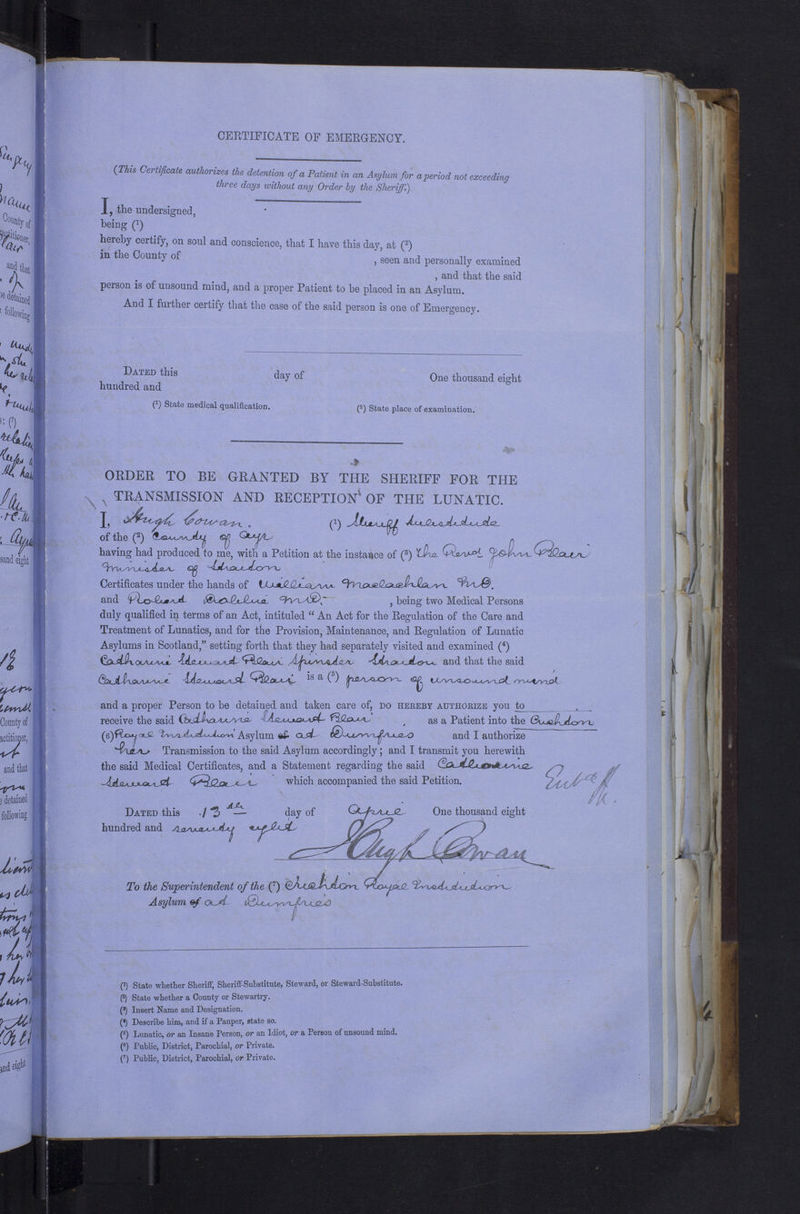 CERTIFICATE OF EMERGENCY.
(This Certificate authorizes the detention of a Patient in an Asylum for a period not exceeding
three days without any Order by the Sheriff.)
I, the undersigned,
being (¹)
hereby certify, on soul and conscience, that I have this day, at (²)
in the County of , seen and personally examined
, and that the said
person is of unsound mind, and a proper Patient to be placed in an Asylum.
And I further certify that the case of the said person is one of Emergency.
DATED this day of One thousand eight
hundred and
(¹) State medical qualification. (²) State place of examination.
ORDER TO BE GRANTED BY THE SHERIFF FOR THE
TRANSMISSION AND RECEPTION OF THE LUNATIC.
I, Hugh Cowan, (¹) Sheriff Substitute
of the (²) County of Ayr
having had produced to me, with a Petition at the instance of (³) the Revd. John Blair
Minister of Straiton
Certificates under the hands of William Maclachlan M.D.
and Robert M.D. , being two Medical Persons
duly qualified in terms of an Act, intituled “ An Act for the Regulation of the Care and
Treatment of Lunatics, and for the Provision, Maintenance, and Regulation of Lunatic
Asylums in Scotland,” setting forth that they had separately visited and examined (⁴)
Catharine Steward Blair Spinster Straiton and that the said
Catharine Steward Blair is a (⁵) person of unsound mind
and a proper Person to be detained and taken care of, DO HEREBY AUTHORIZE you to
receive the said Catharine Steward Blair , as a Patient into the Crichton
(⁶) Royal Institution Asylum of at Dumfries and I authorize
her Transmission to the said Asylum accordingly; and I transmit you herewith
the said Medical Certificates, and a Statement regarding the said Catharine
Steward Blair which accompanied the said Petition.
DATED this 13th day of April One thousand eight
hundred and seventy eight
Hugh Cowan
To the Superintendent of the (⁷) Crichton Royal Institution
Asylum of at Dumfries
(¹) State whether Sheriff, Sheriff-Substitute, Steward, or Steward-Substitute.
(²) State whether a County or Stewartry.
(³) Insert Name and Designation.
(⁴) Describe him, and if a Pauper, state so.
(⁵) Lunatic, or an Insane Person, or an Idiot, or a Person of unsound mind.
(⁶) Public, District, Parochial, or Private.
(⁷) Public, District, Parochial, or Private.